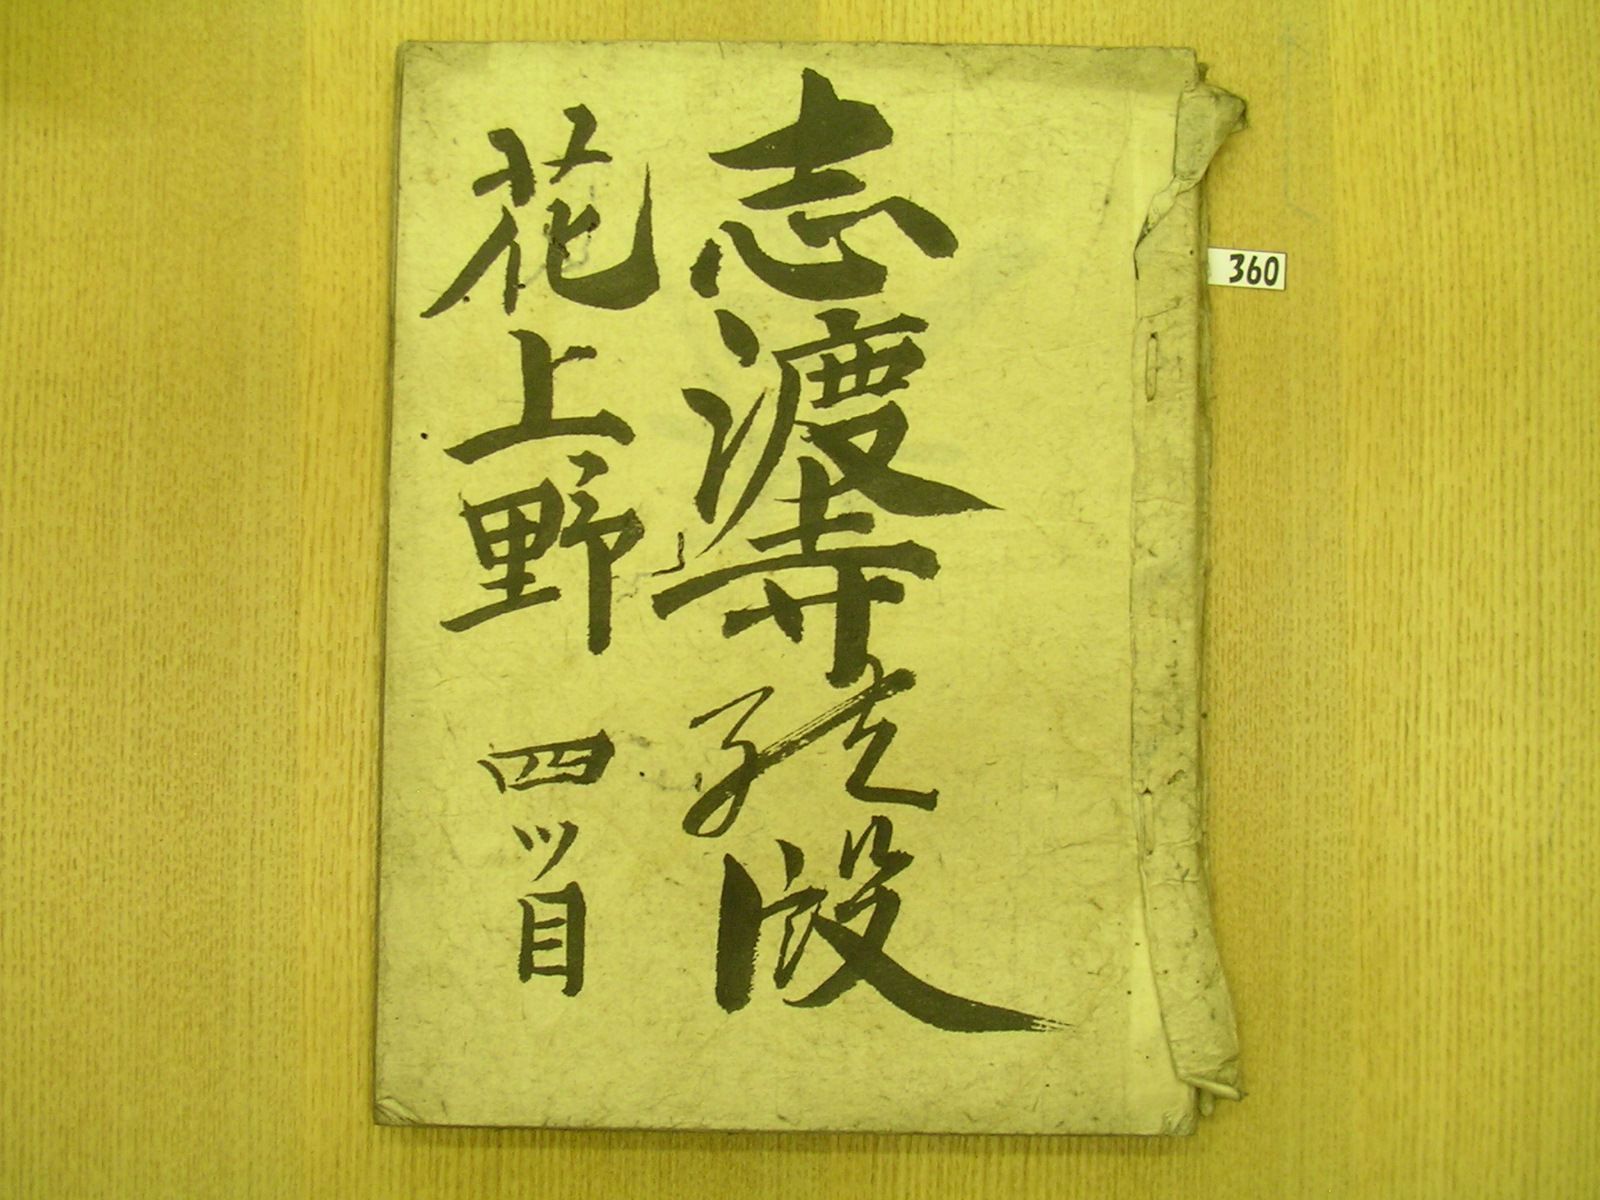 志渡寺 段
花上野 四ツ目
360